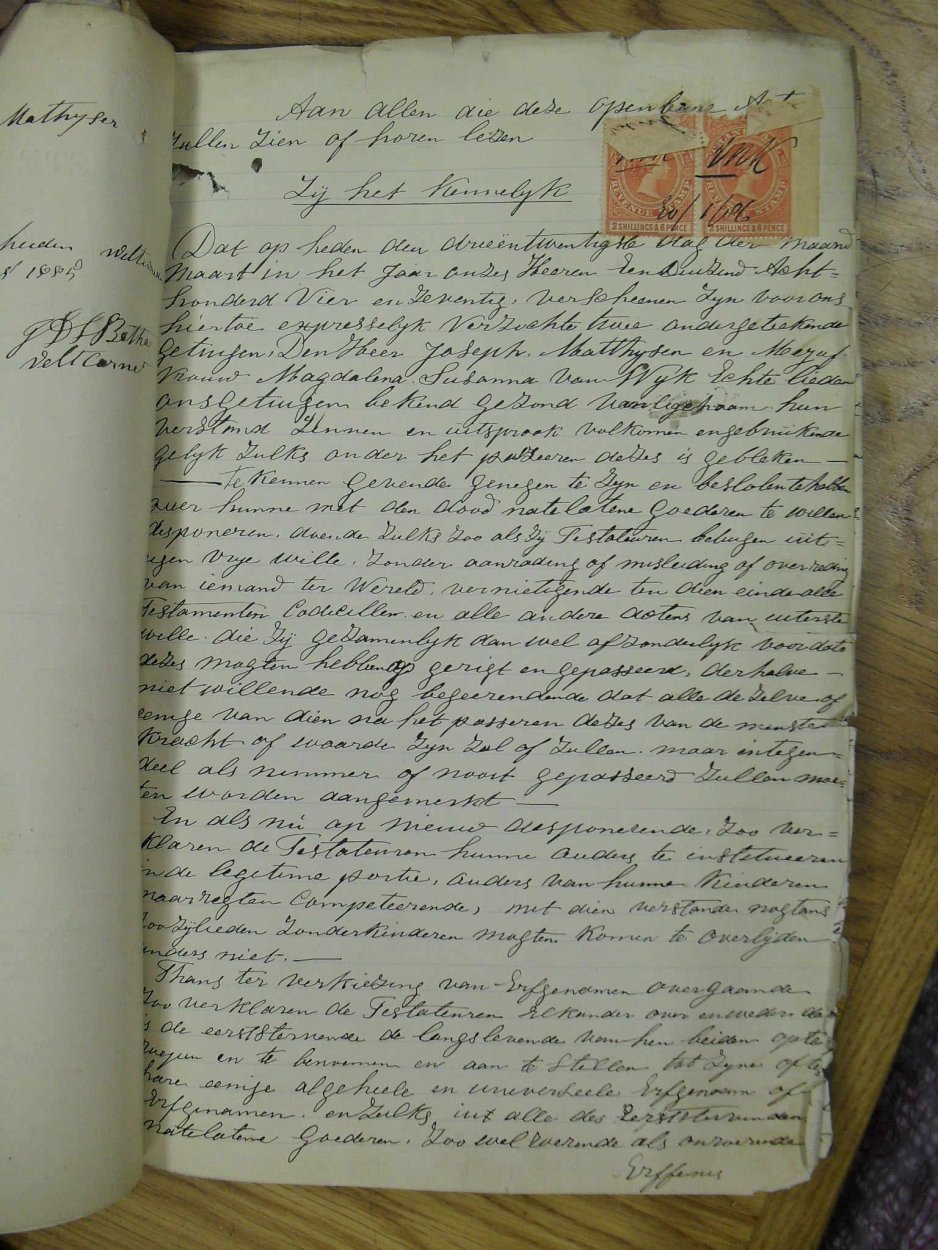 Mathyser
heeden
1885
Bethe
Aan allen die deze openbare Act
Zullen Zien of horen lezen
Zij het Kennelyk
REVENUE STAMP
2 SHILLINGS & 6 PENCE
REVENUE STAMP
2 SHILLINGS & 6 PENCE
Dat op heden den drieëntwentigste dag der maand
Maart in het Jaar onzes Heeren Een Duizend Acht=
honderd Vier en Zeventig, verscheenen Zyn voor ons
hiertoe expresselyk Verzochte twee ondergeteekende
getuigen, Den Heer Joseph. Matthysen en
Vrouw Magdalena. Susanna van Wÿk Echte lieden
ons getuigen bekend gezond van ligchaam hun
verstand Zinnen en uitspraak volkomen en gebruikende
gelyk Zulks onder het passeeren dezes is gebleken —
— Te Kennen gevende genegen te Zyn en besloten te hebben
over hunne met den dood natelatene Goederen te willen
desponeren, doende Zulks Zoo als Zÿ Testateuren betuigen uit=
eigen vrye wille, Zonder aanrading of misleiding of overreding
van iemand ter Wereld, vernietigende ten dien einde alle
Testamenten Codicillen en alle andere actens van uiterste
wille die Zÿ gezamenlyk dan wel afzonderlyk voor dato
dezes mogten hebben op gerigt en gepasseerd, derhalve —
niet willende nog begeerendende dat alle dezelve of
eenige van dien na het passeren dezes van de minste
Kracht of waarde Zyn Zal of Zullen. maar in tegen=
deel als nimmer of nooit gepasseerd Zullen moe=
ten worden aangemerkt —
En als nu op nieuw desponerende, Zoo ver=
klaren de Testateuren hunne ouders te institueeren
in de legitime portie, ouders van hunne Kinderen
naar regten Competeerende, met dien verstande nogtans
Zoo Zÿlieden Zonder kinderen mogten Komen te overlijden
anders niet. —
Thans ter verkiezing van Erfgenamen overgaande
Zoo verklaren de Testateuren Elkander over en weder de
is de eerststervende de langslevende van hen beiden op te
roepen en te benoemen en aan te Stellen tot Zyne of te
hare eenige algeheele en universeele Erfgenaam of
Erfgenamen, en Zulks uit alle des Eerststervenden
natelatene Goederen, Zoo wel roerende als onroerende
Erffenis